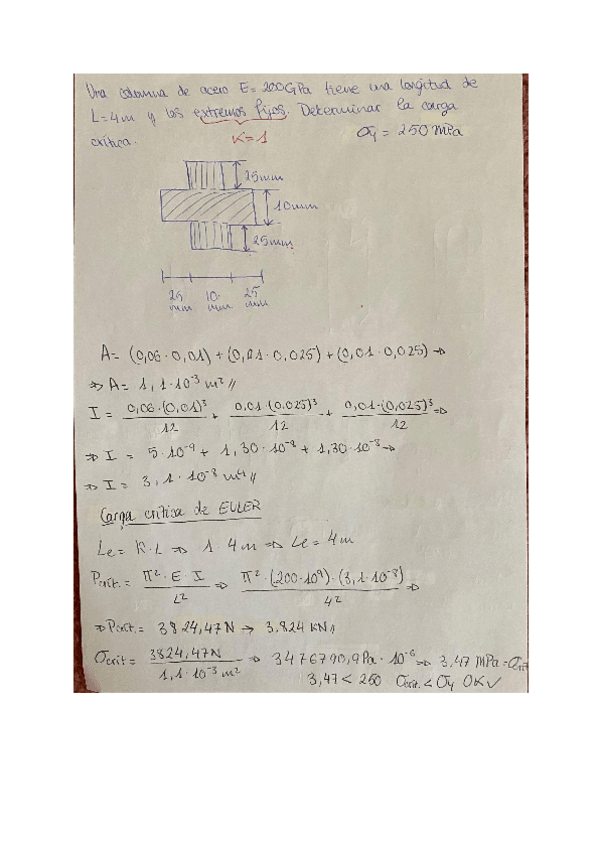 Una columna de acero E= 200GPa tiene una longitud de
L=4m y los extremos fijos. Determinar la carga
crítica. K=1 σy = 250 MPa
25mm
10mm
25mm
25 10 25
mm mm mm
A= (0,06·0,01) + (0,01·0,025) + (0,01·0,025) ⇒
⇒ A= 1,1·10⁻³ m² //
I = 0,06·(0,01)³/12 + 0,01·(0,025)³/12 + 0,01·(0,025)³/12 ⇒
⇒ I = 5·10⁻⁹ + 1,30·10⁻⁸ + 1,30·10⁻⁸ ⇒
⇒ I = 3,1·10⁻⁸ m⁴ //
Carga crítica de EULER
Le = K·L ⇒ 1·4m ⇒ Le = 4m
Pcrit. = π²·E·I/L² ⇒ π²·(200·10⁹)·(3,1·10⁻⁸)/4² ⇒
⇒ Pcrit. = 3824,47N → 3,824 KN //
σcrit = 3824,47N/1,1·10⁻³ m² ⇒ 3476790,9Pa·10⁻⁶ ⇒ 3,47 MPa = σcrit
3,47 < 250 σcrit. < σy OK √